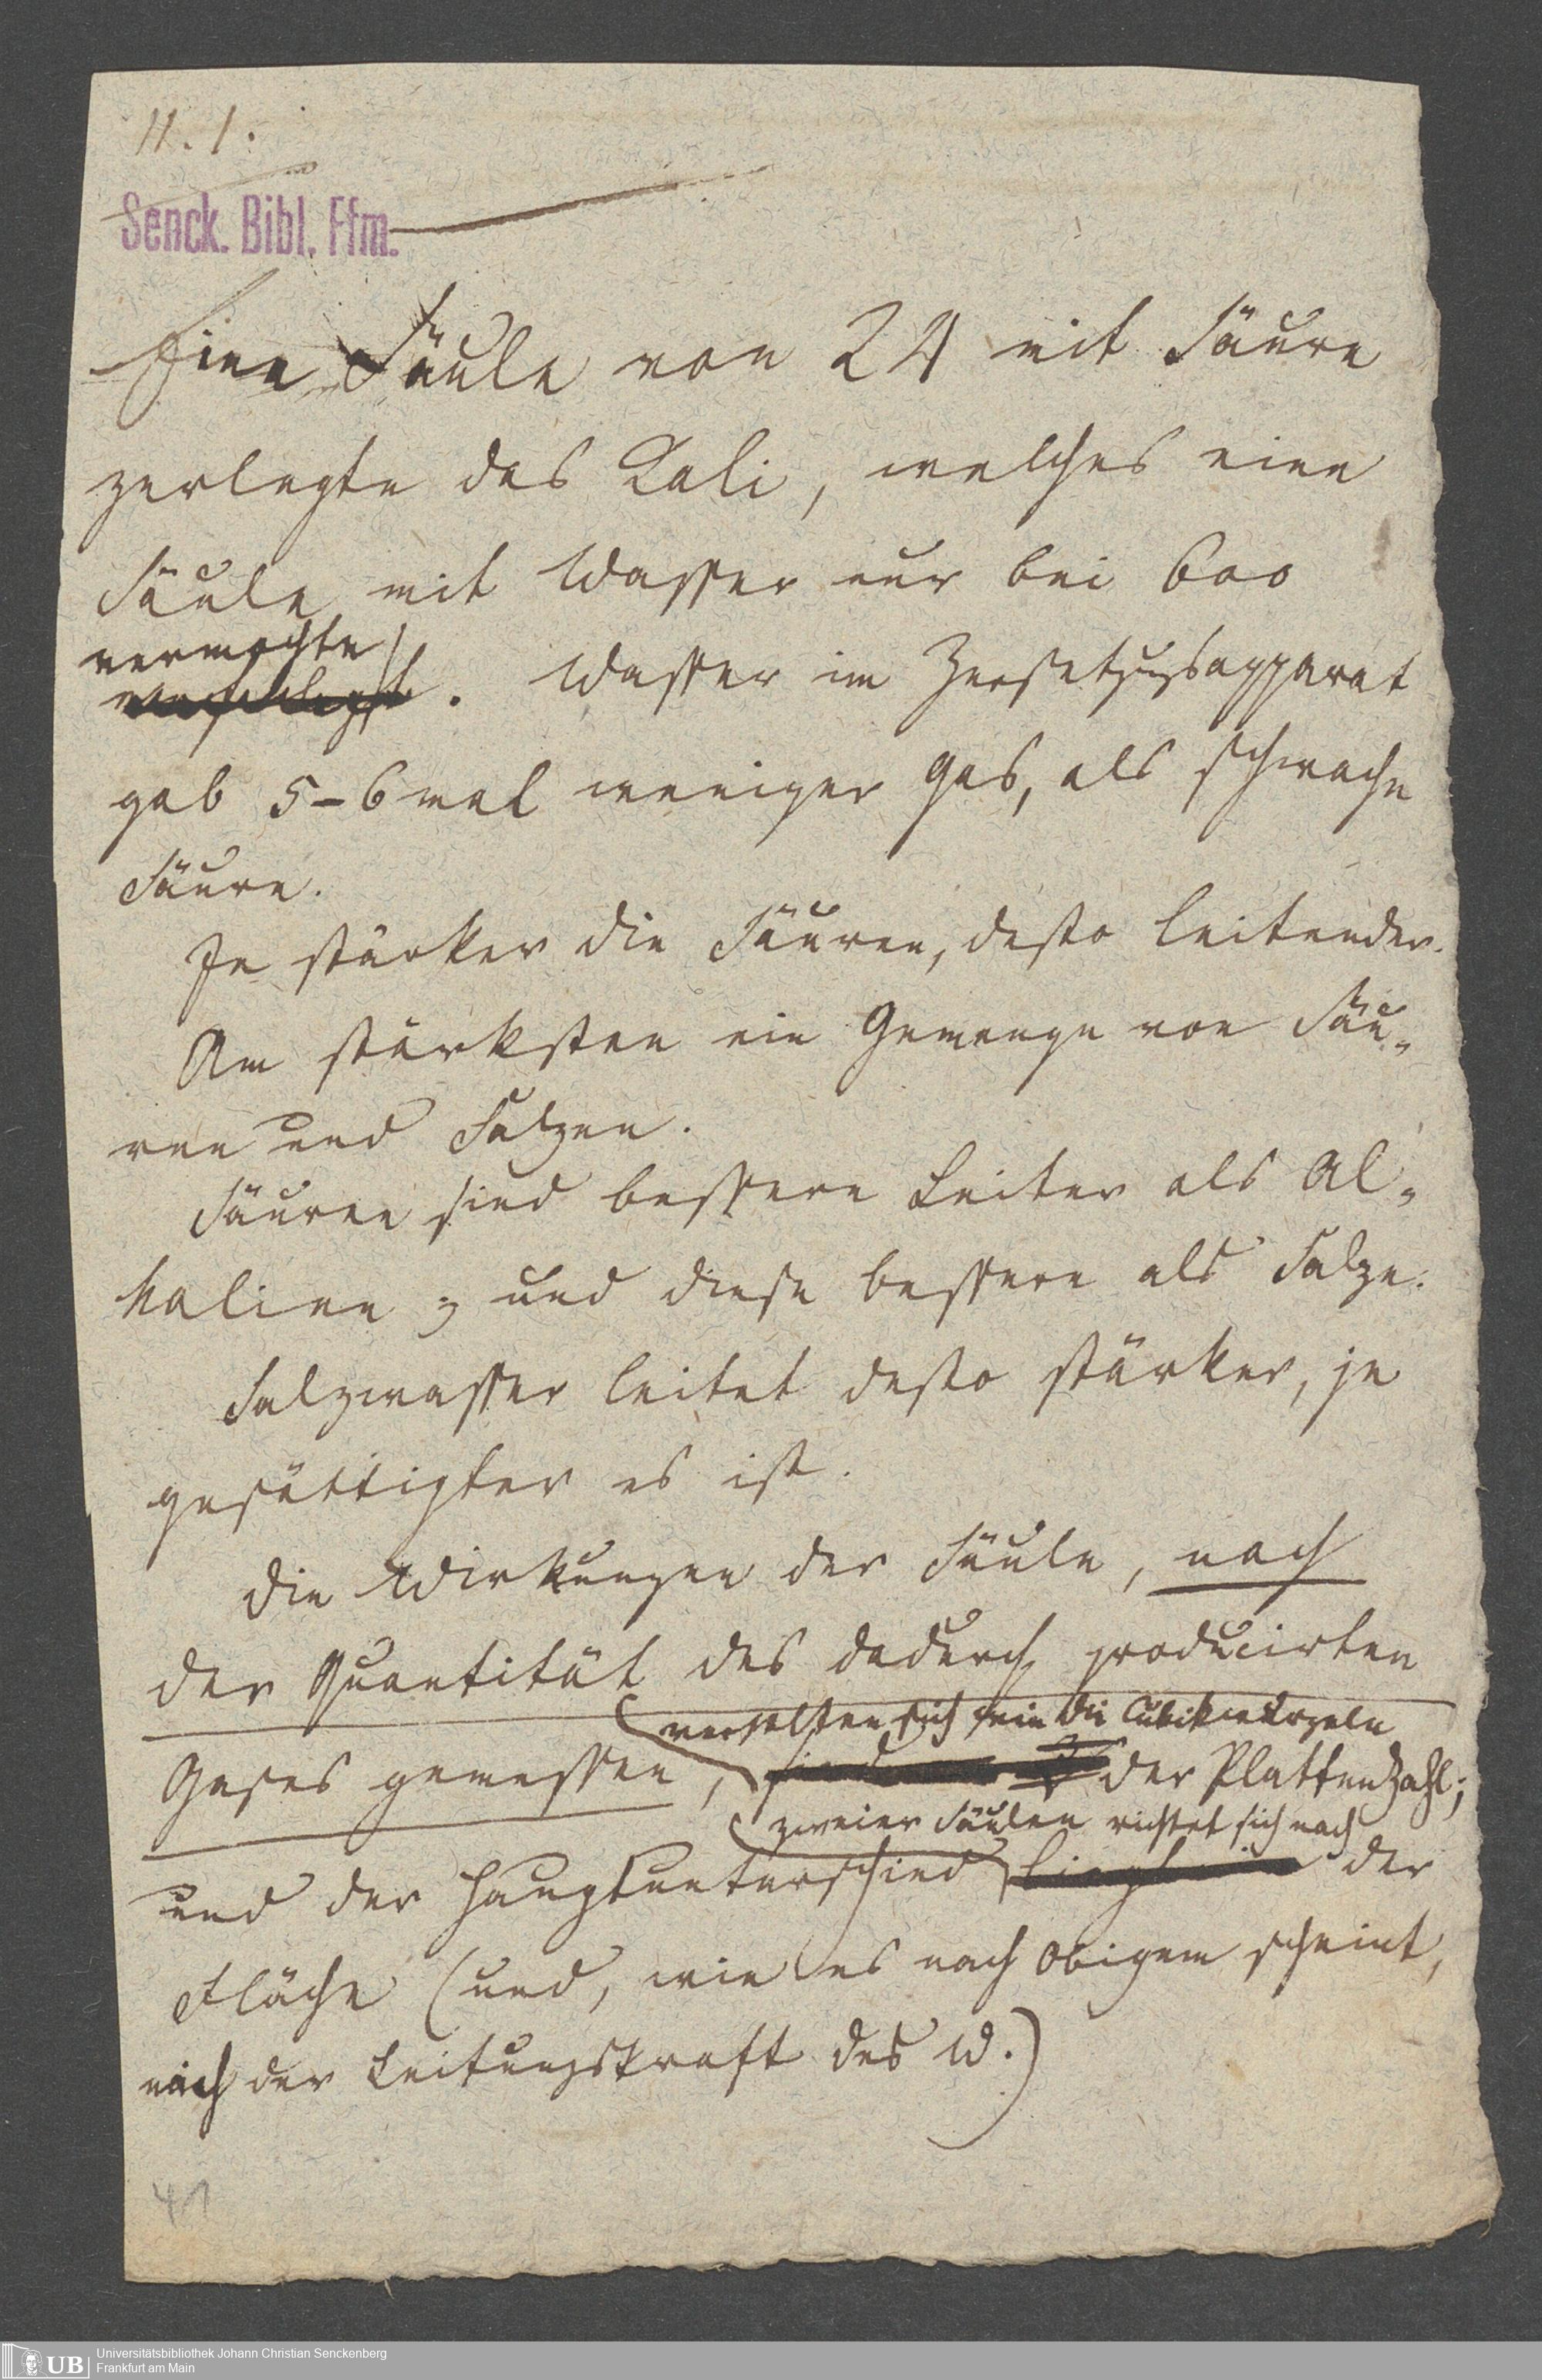 II. 1.
Senck. Bibl. Ffm.
Eine Säule von 24 mit Säure
zerlegte das Kali, welches eine
Säule mit Wasser nur bei 600
vermochte
. Wasser im Zersetzgsapparat
gab 5-6mal weniger Gas, als schwache
Säure.
Je stärker die Säuren, desto leitender.
Am stärksten ein Gemenge von Säu-
ren und Salzen.
Säuren sind bessere Leiter als Al-
kalien; und diese bessere als Salze.
Salzwasser leitet desto stärker, je
gesättigter es ist.
Die Wirkungen der Säule, nach
der Quantität des dadurch producirten
verhalten sich wie die Cubikwurzeln
Gases gemessen, der Plattenzahl;
zweier Säulen richtet sich nach
und der Hauptunterschied der
Fläche (und, wie es nach Obigem scheint,
nach der Leitungskraft des W.)
41
UB
Universitätsbibliothek Johann Christian Senckenberg
Frankfurt am Main